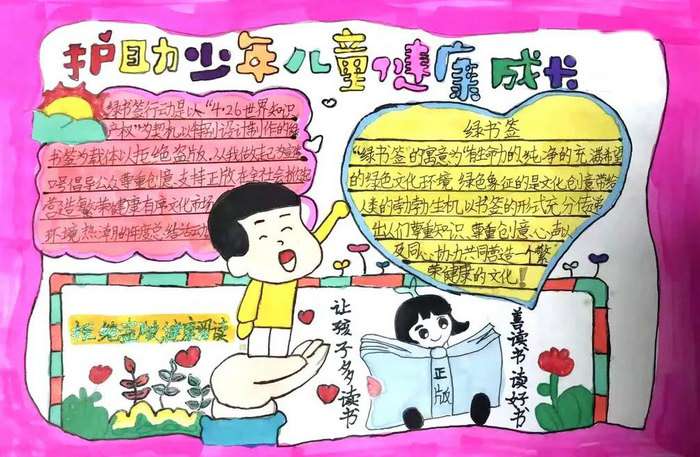 护助少年儿童健康成长
绿书签行动是以“4·26世界知识
产权”为契机以特别设计制作的绿
书签为载体以拒绝盗版,从我做起为宣传
口号倡导公众尊重创意,支持正版在全社会掀起
营造繁荣健康有序文化市场
环境热潮的年度总结活动
绿书签
“绿书签的寓意为有生命力的纯净的充满希望
的绿色文化环境 绿色象征的是文化创意带给
人类的勃勃生机以书签的形式充分传递
出人们尊重知识 尊重创意心声以
及同心协力共同营造一个繁
荣健康的文化!
拒绝盗版健康阅读
让孩子多读书
正版
善读书读好书